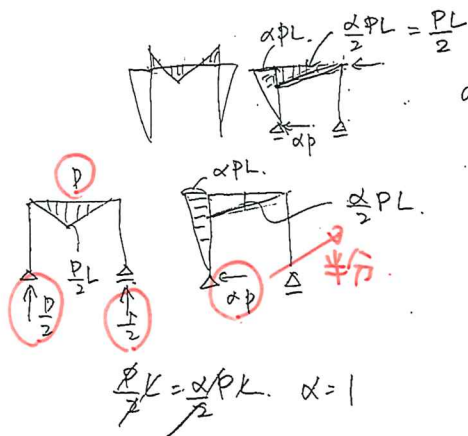 αPL
α/2 PL = PL/2
αP
αPL.
P
α/2 PL.
P/2 L
半分
αP
P/2
P/2
P/2 L = α/2 PL. α = 1